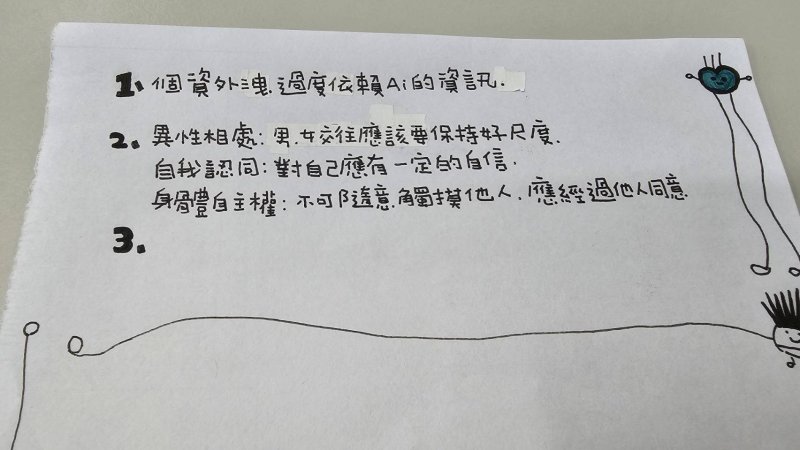 1、個資外洩.過度依賴Ai的資訊.
2. 異性相處:男.女交往應該要保持好尺度.
自我認同:對自己應有一定的自信.
身體自主權:不可隨意觸摸他人.應經過他人同意
3.